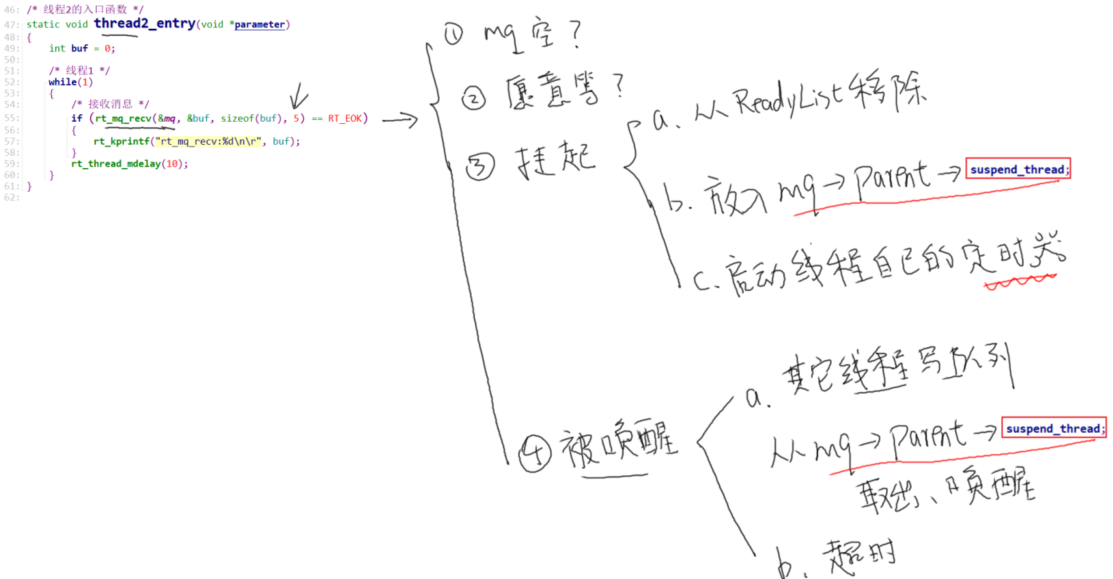 46: /* 线程2的入口函数 */
47: static void thread2_entry(void *parameter)
48: {
49: int buf = 0;
50:
51: /* 线程1 */
52: while(1)
53: {
54: /* 接收消息 */
55: if (rt_mq_recv(&mq, &buf, sizeof(buf), 5) == RT_EOK)
56: {
57: rt_kprintf("rt_mq_recv:%d\n\r", buf);
58: }
59: rt_thread_mdelay(10);
60: }
61: }
62:
① mq 空?
② 愿意等?
③ 挂起
a. 从ReadyList移除
b. 放入 mq→parent→suspend_thread;
c. 启动线程自己的定时器
④ 被唤醒
a. 其它线程写队列
从mq→parent→suspend_thread;
取出、唤醒
b. 超时